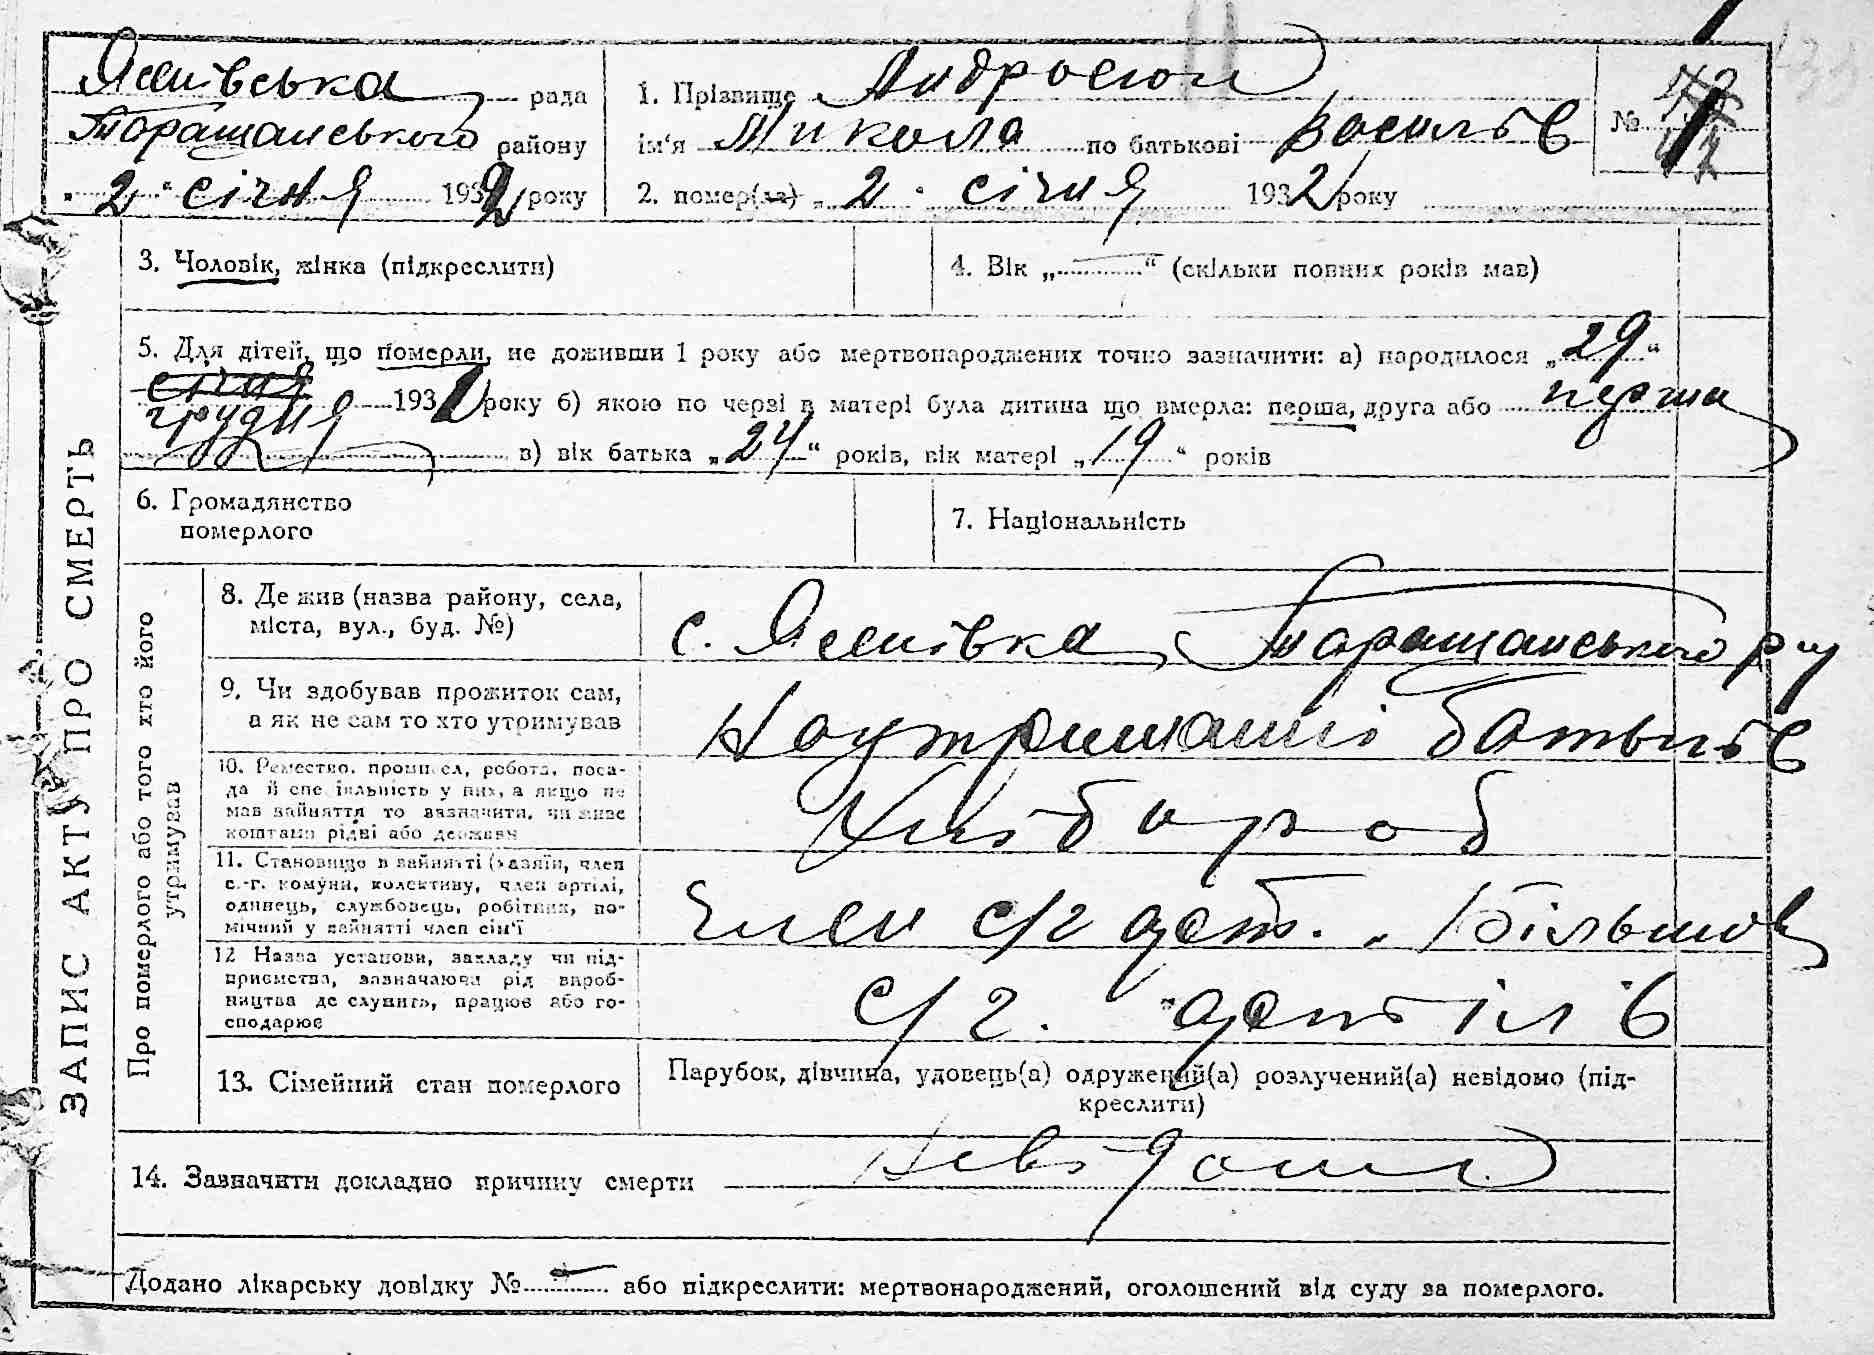 Яснівська рада
Таращанського району
" 2 " січня 1932 року
1. Прізвище Андросюк
ім'я Микола по батькові Василів
2. помер(ла) " 2 " січня 1932 року
№
3. Чоловік, жінка (підкреслити)
4. Вік „ — “ (скільки повних років мав)
5. Для дітей, що померли, не доживши 1 року або мертвонароджених точно зазначити: а) народилося „ 29 “
січня
грудня 1931 року б) якою по черзі в матері була дитина що вмерла: перша, друга або перша
в) вік батька „ 24 “ років, вік матері „ 19 “ років
6. Громадянство
померлого
7. Національність
ЗАПИС АКТУ ПРО СМЕРТЬ
Про померлого або того хто його
утримував
8. Де жив (назва району, села,
міста, вул., буд. №)
с. Яснівка Таращанського р-ну
9. Чи здобував прожиток сам,
а як не сам то хто утримував
На утриманні батьків
10. Ремество, промисел, робота, поса-
да й спеціяльність у них, а якщо не
мав зайняття то зазначити, чи живе
коштами рідні або держави
Хлібороб
11. Становище в зайнятті (хазяїн, член
с.-г. комуни, колективу, член артілі,
одинець, службовець, робітник, по-
мічний у зайнятті член сім'ї
Член с/г арт. „Більшов
12 Назва установи, закладу чи під-
приємства, зазначаючи рід вироб-
ництва де служить, працює або го-
сподарює
с/г. артілі
13. Сімейний стан померлого
Парубок, дівчина, удовець(а) одружений(а) розлучений(а) невідомо (під-
креслити)
14. Зазначити докладно причину смерти Невідомо
Додано лікарську довідку № — або підкреслити: мертвонароджений, оголошений від суду за померлого.